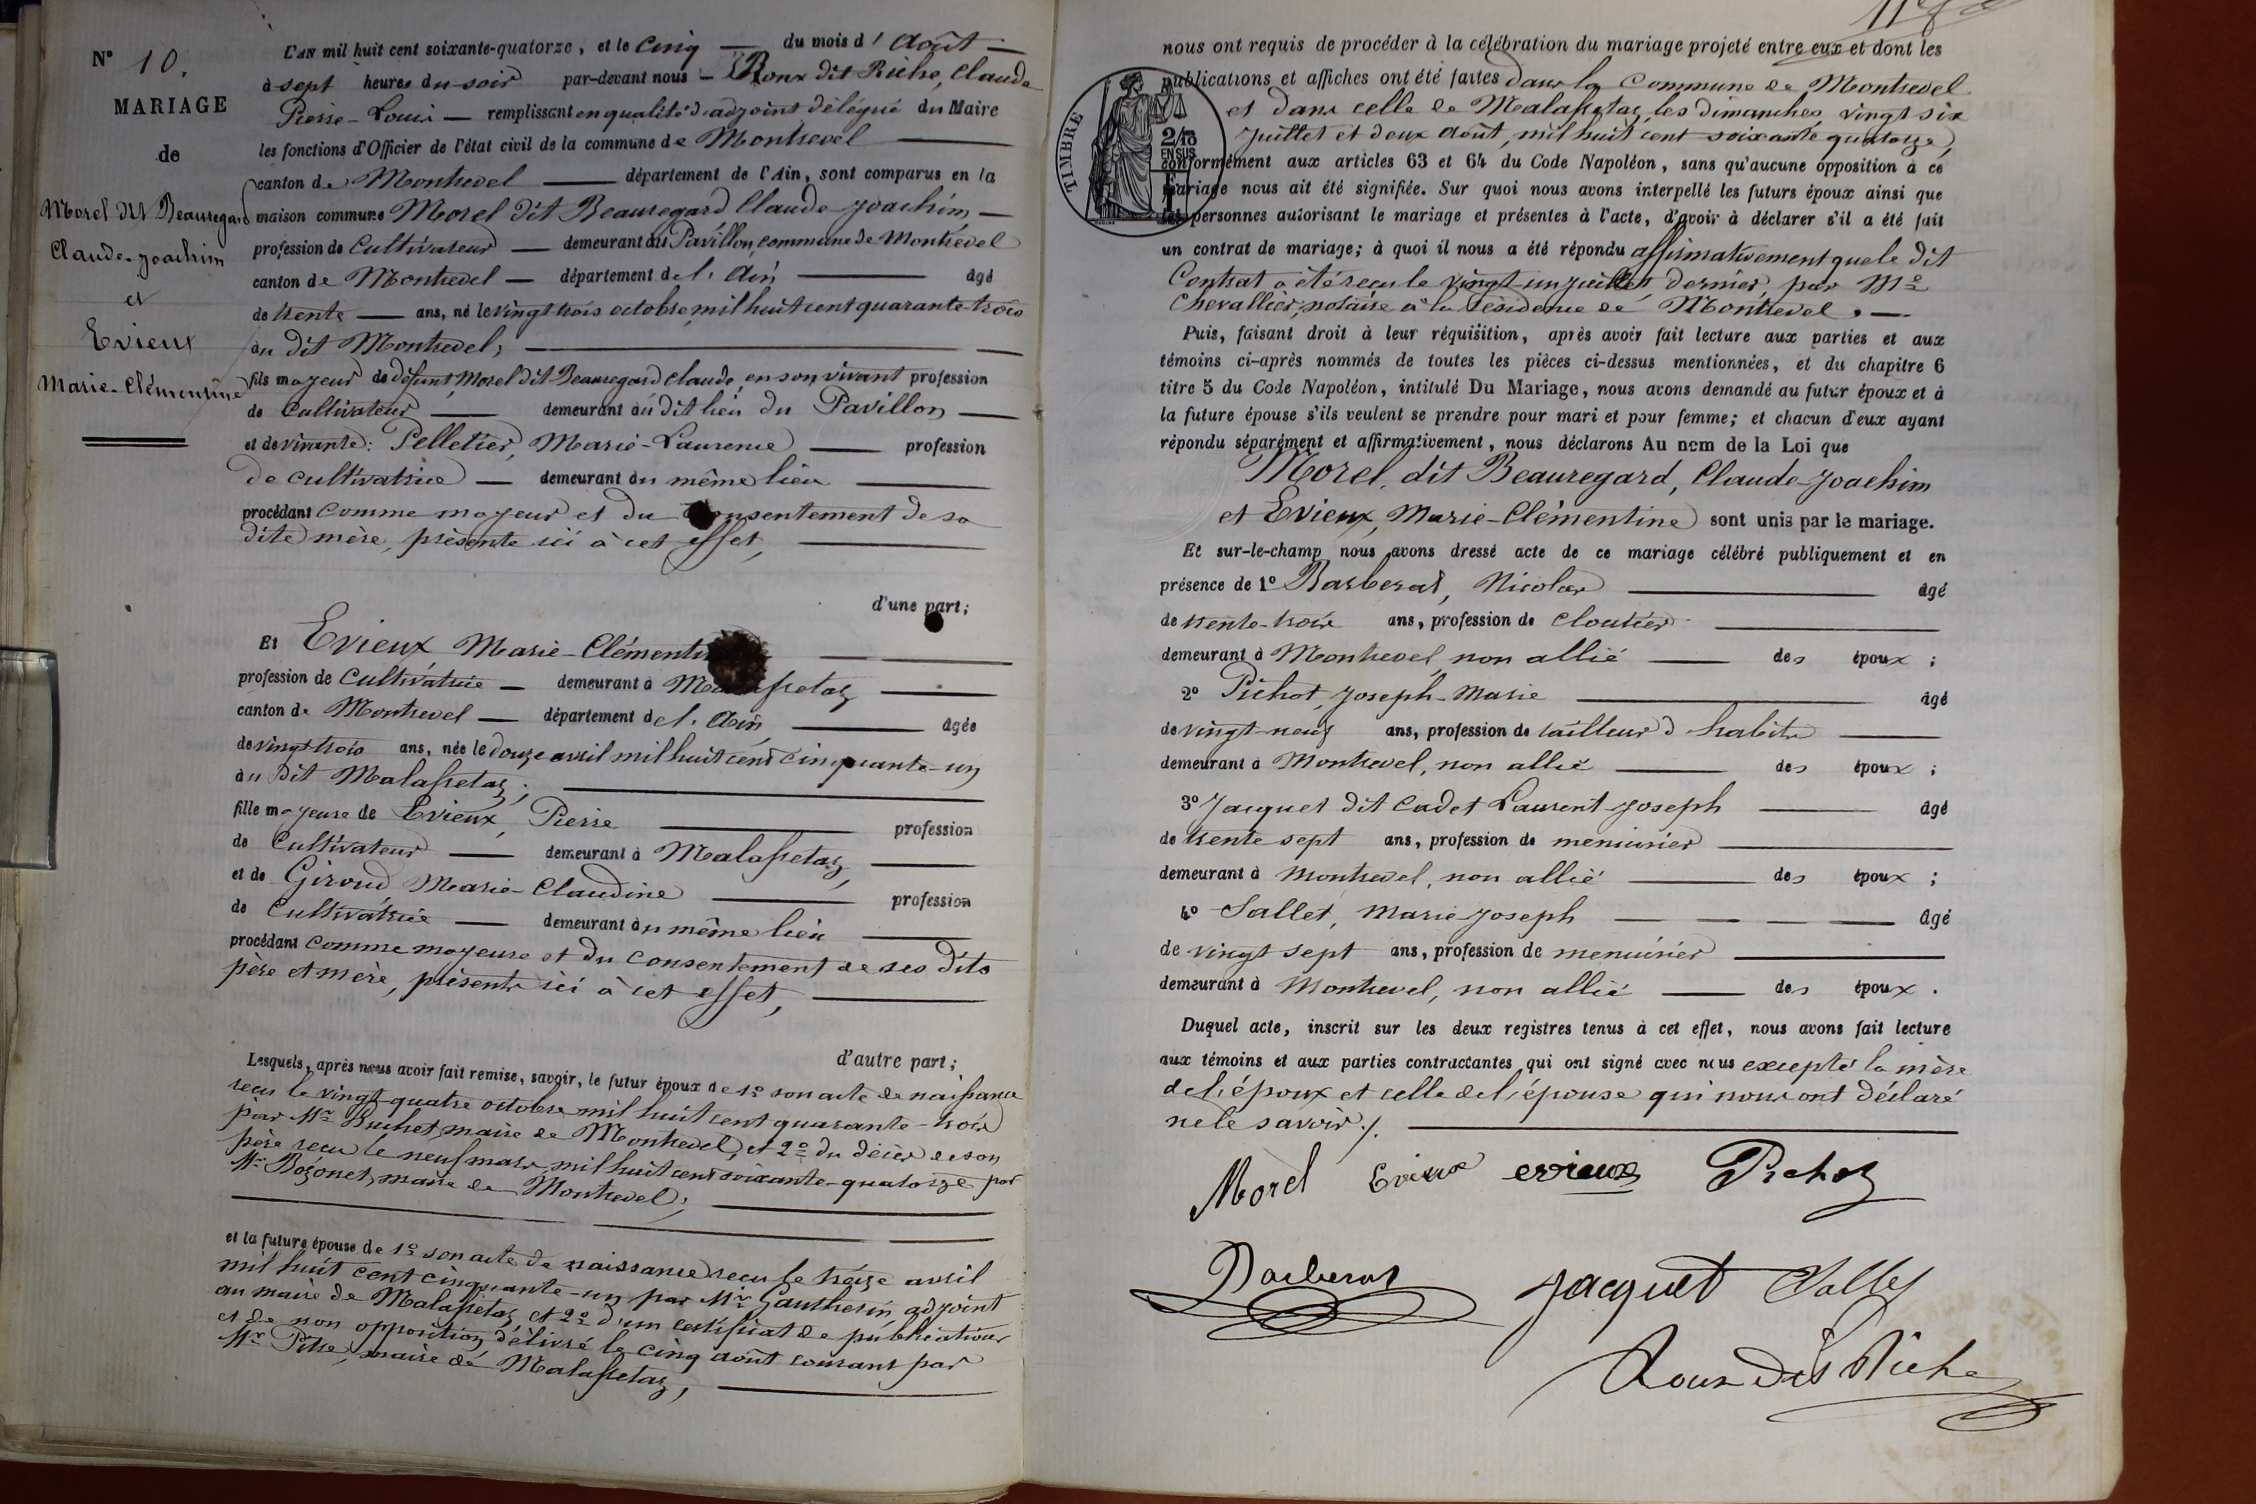 N° 10.
MARIAGE
de
Morel dit Beauregard
Claude-Joachim
et
Evieux
Marie-Clémentine
L'AN mil huit cent soixante-quatorze, et le Cinq du mois d'Août
à sept heures du soir par-devant nous Roux dit Riche, Claude
Pierre-Louis remplissant en qualité d'adjoint délégué du Maire
les fonctions d'Officier de l'état civil de la commune de Montrevel
canton de Montrevel département de l'Ain, sont comparus en la
maison commune Morel dit Beauregard Claude-Joachim
profession de Cultivateur demeurant au Pavillon, commune de Montrevel
canton de Montrevel département de l'Ain âgé
de trente ans, né le vingt trois octobre, mil huit cent quarante-trois
au dit Montrevel;
fils majeur de défunt, Morel dit Beauregard Claude, en son vivant profession
de Cultivateur demeurant au dit lieu du Pavillon
et de vivante: Pelletier, Marie-Laurence profession
de cultivatrice demeurant au même lieu
procédant comme majeur et du consentement de sa
dite mère, présente ici à cet effet,
d'une part;
Et Evieux Marie-Clémentine
profession de Cultivatrice demeurant à Malafretaz
canton de Montrevel département de l'Ain, âgée
de vingt trois ans, née le douze avril mil huit cent cinquante-un
au dit Malafretaz;
fille majeure de Evieux, Pierre profession
de Cultivateur demeurant à Malafretaz,
et de Giroud Marie-Claudine profession
de Cultivatrice demeurant au même lieu
procédant comme majeure et du consentement de ses dits
père et mère, présents ici à cet effet,
d'autre part;
Lesquels, après nous avoir fait remise, savoir, le futur époux de 1° son acte de naissance
reçu le vingt-quatre octobre mil huit cent quarante-trois
par Mr Buchet, maire de Montrevel, et 2° du décès de son
père reçu le neuf mars, mil huit cent soixante-quatorze par
Mr Bozonet, maire de Montrevel;
et la future épouse de 1° son acte de naissance reçu le treize avril
mil huit cent cinquante-un par Mr Gautherin, adjoint
au maire de Malafretaz, et 2° d'un certificat de publications
et de non opposition, délivré le cinq août courant par
Mr Pitre, maire de Malafretaz,
nous ont requis de procéder à la célébration du mariage projeté entre eux et dont les
publications et affiches ont été faites dans la Commune de Montrevel
et dans celle de Malafretaz, les dimanches, vingt six
Juillet et deux Août, mil huit cent soixante quatorze,
conformément aux articles 63 et 64 du Code Napoléon, sans qu'aucune opposition à ce
mariage nous ait été signifiée. Sur quoi nous avons interpellé les futurs époux ainsi que
les personnes autorisant le mariage et présentes à l'acte, d'avoir à déclarer s'il a été fait
un contrat de mariage; à quoi il nous a été répondu affirmativement que le dit
Contrat a été reçu le vingt-un juillet dernier, par Me
Chevallier, notaire à la résidence de Montrevel.
Puis, faisant droit à leur réquisition, après avoir fait lecture aux parties et aux
témoins ci-après nommés de toutes les pièces ci-dessus mentionnées, et du chapitre 6
titre 5 du Code Napoléon, intitulé Du Mariage, nous avons demandé au futur époux et à
la future épouse s'ils veulent se prendre pour mari et pour femme; et chacun d'eux ayant
répondu séparément et affirmativement, nous déclarons Au nom de la Loi que
Morel, dit Beauregard, Claude-Joachim
et Evieux, Marie-Clémentine sont unis par le mariage.
Et sur-le-champ nous avons dressé acte de ce mariage célébré publiquement et en
présence de 1° Barberat, Nicolas âgé
de trente-trois ans, profession de cloutier
demeurant à Montrevel, non allié des époux;
2° Pichot, Joseph-Marie âgé
de vingt-neuf ans, profession de tailleur d'habits
demeurant à Montrevel, non allié des époux;
3° Jacquet dit Cadet Laurent-Joseph âgé
de trente sept ans, profession de menuisier
demeurant à Montrevel, non allié des époux;
4° Sallet, Marie Joseph âgé
de vingt sept ans, profession de menuisier
demeurant à Montrevel, non allié des époux.
Duquel acte, inscrit sur les deux registres tenus à cet effet, nous avons fait lecture
aux témoins et aux parties contractantes qui ont signé avec nous excepté la mère
de l'époux et celle de l'épouse qui nous ont déclaré
ne le savoir./.
Morel Evieux evieux Pichot
Barberat Jacquet Sallet
Roux dit Riche
TIMBRE
2/10
EN SUS